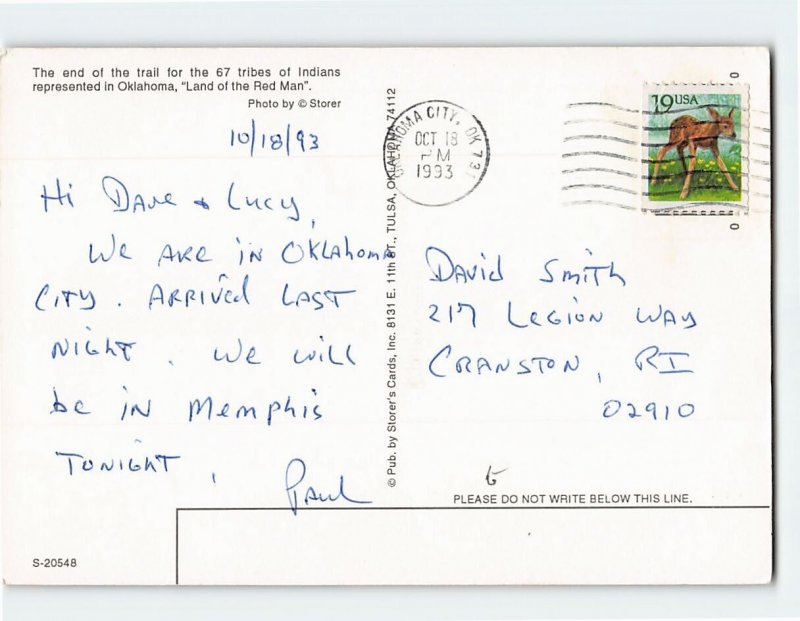 The end of the trail for the 67 tribes of Indians
represented in Oklahoma, "Land of the Red Man".
Photo by © Storer
10/18/93
Hi Dave + Lucy,
We are in Oklahoma
City. Arrived last
night. We will
be in Memphis
tonight.
Paul
S-20548
© Pub. by Storer's Cards, Inc. 8131 E. 11th ST., TULSA, OKLAHOMA 74112
OKLAHOMA CITY, OK 731
OCT 18
PM
1993
19USA
David Smith
217 Legion Way
Cranston, RI
02910
PLEASE DO NOT WRITE BELOW THIS LINE.